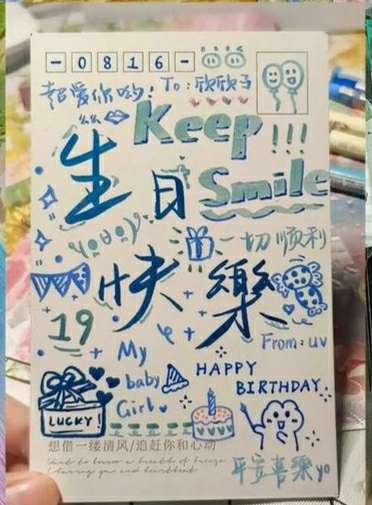 - 0 8 1 6 -
超爱你哟! To: 欣欣子
么么
Keep !!!
生日 Smile
一切顺利
快樂
19
From: uv
My
baby
Girl
HAPPY
BIRTHDAY
LUCKY
想借一缕清风/追赶你和心动
平安喜樂 yo